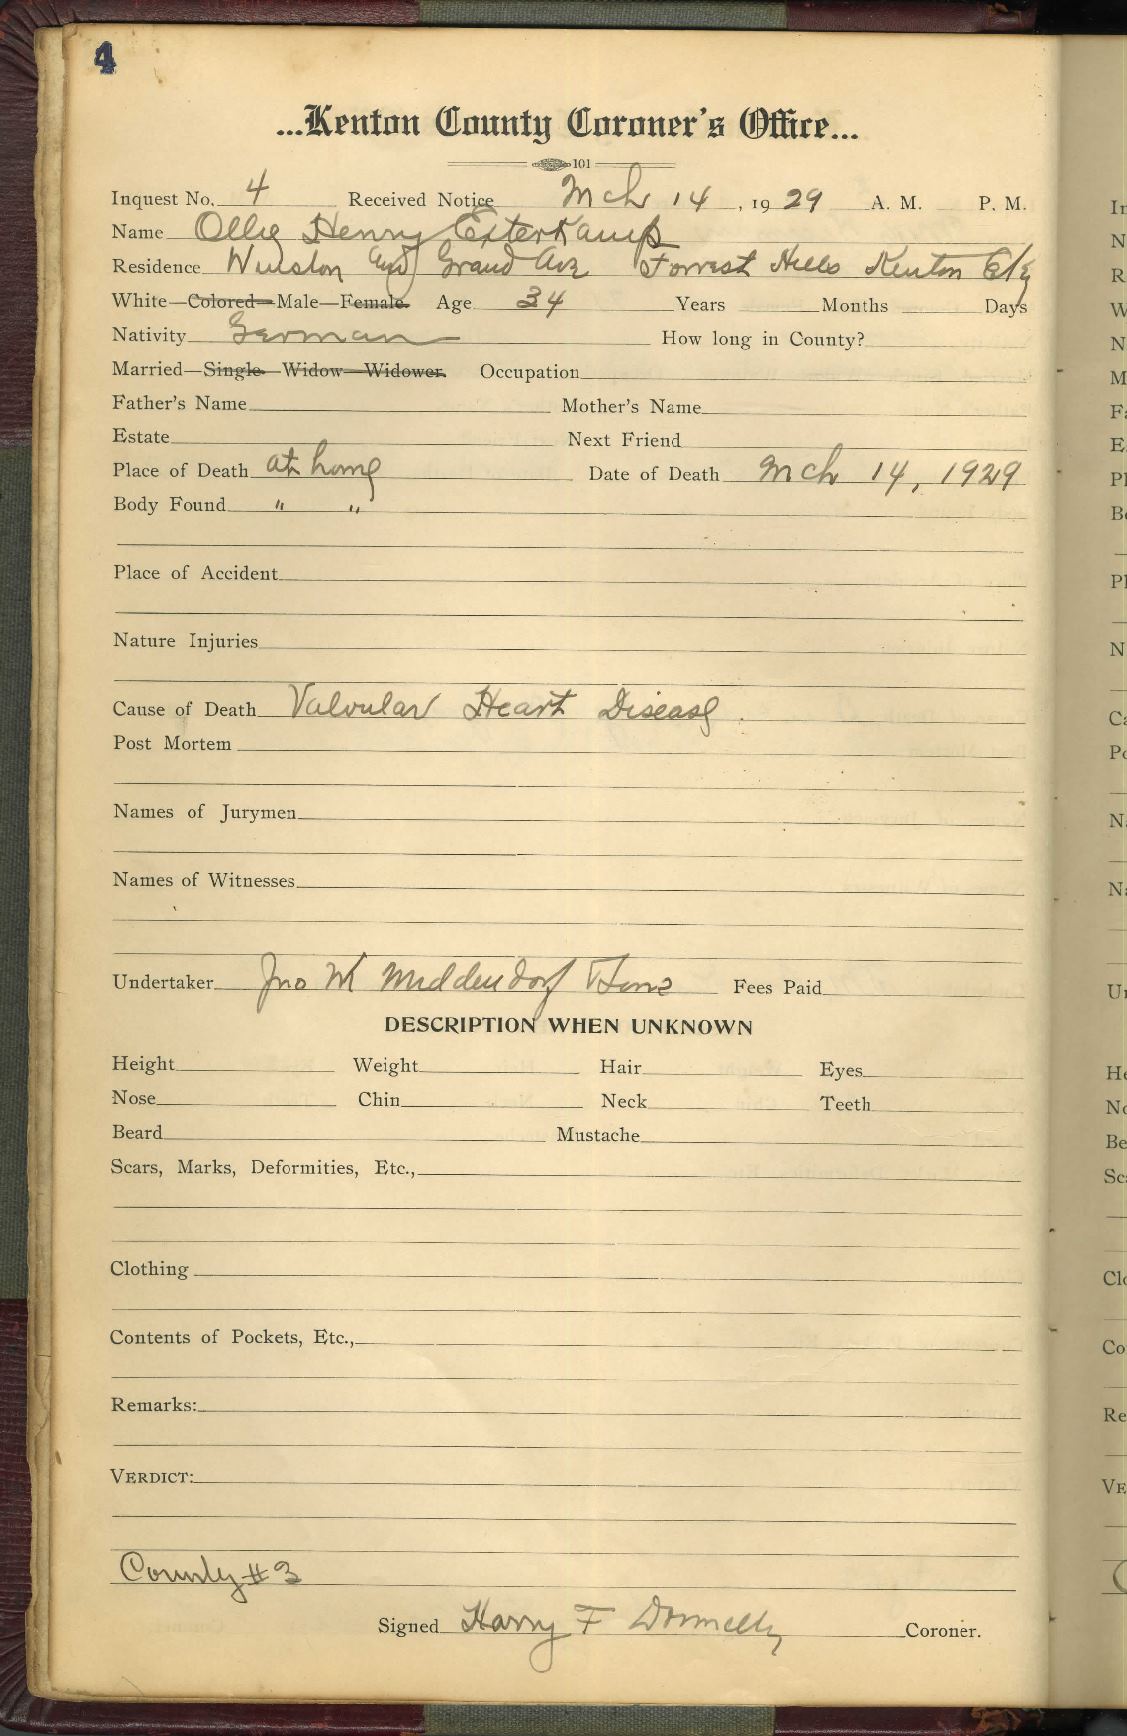 4
...Kenton County Coroner's Office...
101
Inquest No. 4 Received Notice Mch 14, 1929 A. M. P. M.
Name Ollie Henry Exterkamp
Residence Winston and Grand Ave Forrest Hills Kenton Cty
White—Colored—Male—Female. Age 34 Years Months Days
Nativity German How long in County?
Married—Single—Widow—Widower. Occupation
Father's Name Mother's Name
Estate Next Friend
Place of Death at home Date of Death Mch 14, 1929
Body Found " "
Place of Accident
Nature Injuries
Cause of Death Valvular Heart Disease
Post Mortem
Names of Jurymen
Names of Witnesses
Undertaker Jno Middendorf Sons Fees Paid
DESCRIPTION WHEN UNKNOWN
Height Weight Hair Eyes
Nose Chin Neck Teeth
Beard Mustache
Scars, Marks, Deformities, Etc.,
Clothing
Contents of Pockets, Etc.,
Remarks:
VERDICT:
County #3
Signed Harry F Donnelly Coroner.